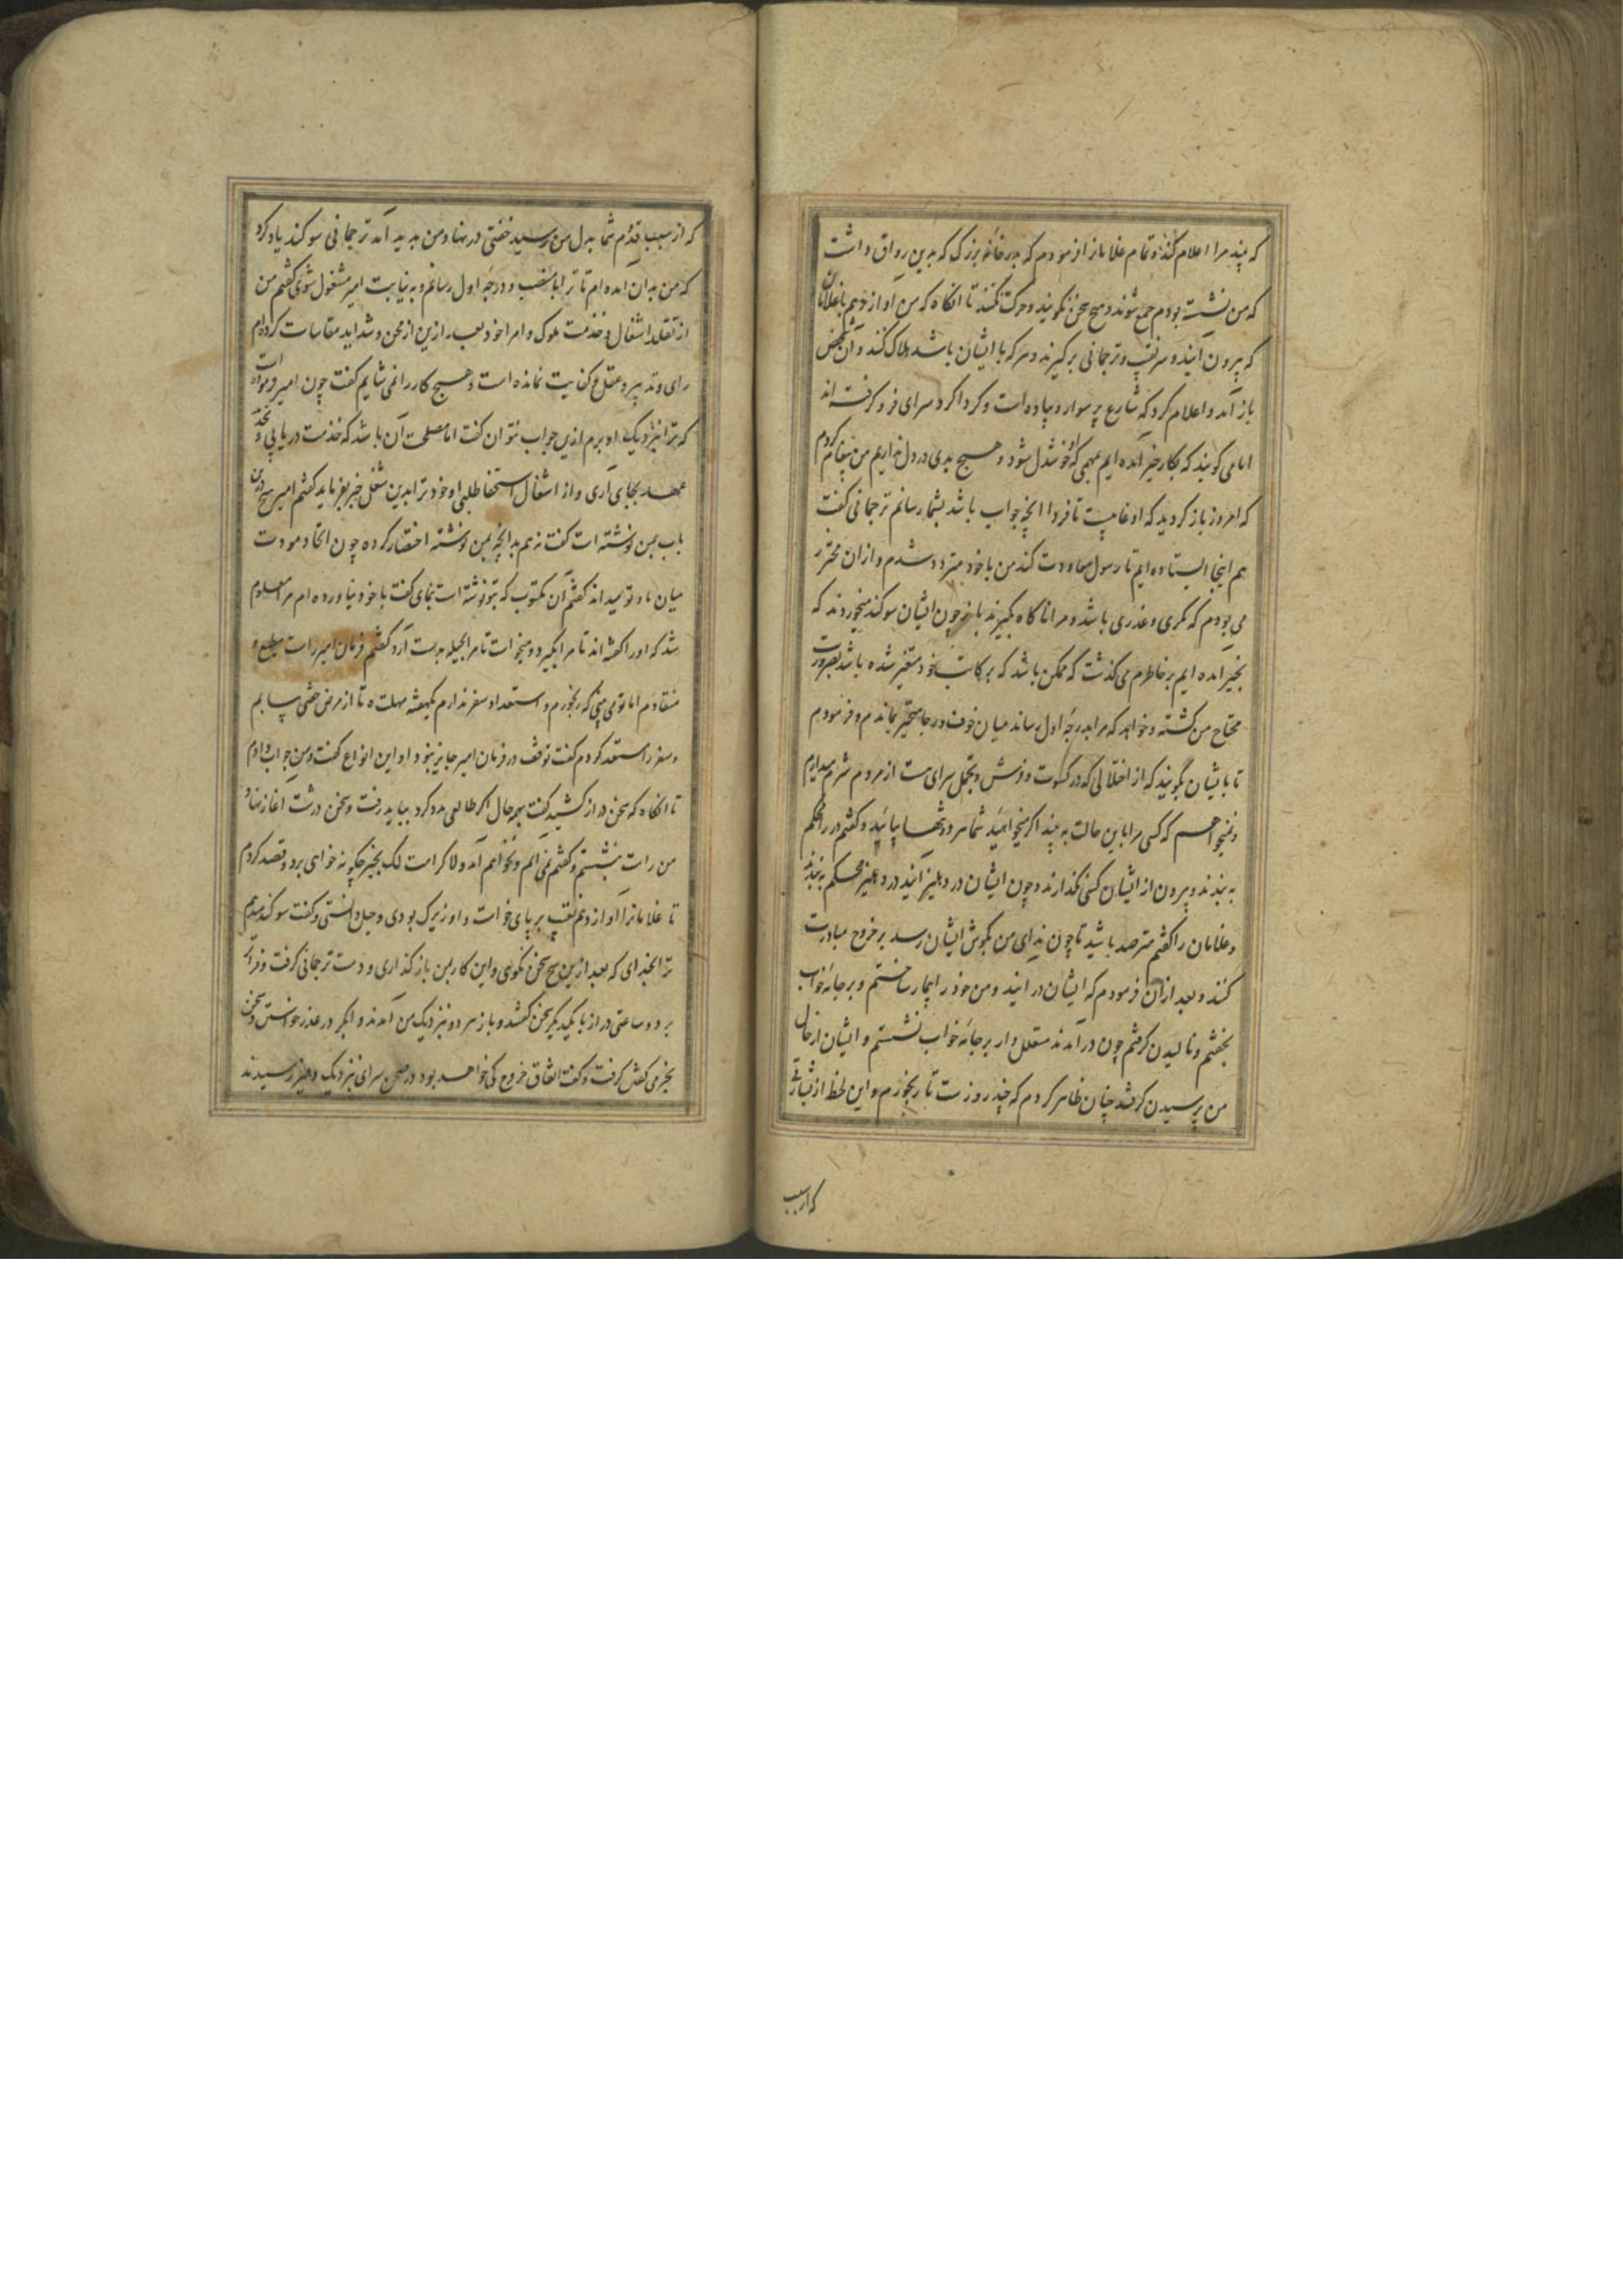 که بیند مرا اعلام کند و تمام غلامانرا فرمودم که بدر خانهٔ بزرک که بدین رواق داشت
که من نشسته بودم جمع شوند و هیچ سخن نکویند و حرکت نکنند تا انکاه که من آواز دهم با غلامان
که بیرون آیند و سر نقیب و ترجمانی برکیرند و هرکه با ایشان باشد هلاک کنند و آن شخص
باز آمد و اعلام کرد که شارع پر سوار و پیاده است و کردا کرد سرای فرو کرفته اند
اما می کویند که بکار خیر آمده ایم بمهمی که او خوشدل شود و هیچ بدی در دل نداریم من پیغام کردم
که امروز باز کردید که او غایبست تا فردا انچه جواب باشد بشما رسانم ترجمانی کفت
هم اینجا ایستاده ایم تا رسول معاودت کند من با خود متردد شدم و از ان محترز
می بودم که مکری و غدری باشد و مرا ناکاه بکیرند باز چون ایشان سوکند میخوردند که
بخیر آمده ایم بر خاطرم می کذشت که ممکن باشد که بر کاتب خود متغیر شده باشد بضرورت
محتاج من کشته و خواهد که مرا بدرجهٔ اول رساند میان خوف و رجا متحیر بماندم و فرمودم
تا با یشان بکویند که از اختلالی که در کسوت و فرش و تجمل سرای هست از مردم شرم میدارم
و نمیخواهم که کسی مرا باین حالت به بیند اکر میخواهید شما هر دو تنها بیائید و کفتم در را محکم
به بندند و بیرون از ایشان کسی نکذارند و چون ایشان در دهلیز آیند در دهلیز محکم به بندند
و غلامان را کفتم مترصد باشید تا چون ندای من بکوش ایشان رسد بر خروج مبادرت
کنند و بعد ازان فرمودم که ایشان در ایند و من خود را بیمار ساختم و بر جامهٔ خواب
بخفتم و نالیدن کرفتم چون در آمدند متعلل وار بر جامهٔ خواب نشستم و ایشان از حال
من پرسیدن کرفتند چنان ظاهر کردم که چند روز ست تا رنجورم و این لحظ از بشارتی
که از سبب
که از سبب قدوم شما بدل من رسید خفتی در نهاد من پدید آمد ترجمانی سوکند یاد کرد
که من بدان آمده ام تا ترا با منصب و درجهٔ اول رسانم و به نیابت امیر مشغول شوی کفتم من
از تقلد اشغال و خدمت ملوک و امرا خود بعد ازین از محن و شداید مقاسات کرده ام
رای و تدبیر و عقل و کفایت نمانده است و هیچ کار را نمی شایم کفت چون امیر فرموده است
که ترا بنزدیک او برم ازین جواب نتوان کفت اما مصلحت آن باشد که خدمت دریابی و تجدید
عهد بجای آری و از اشغال استعفا طلبی او خود ترا بدین شغل خبر بفرماید کفتم امیر هیچ درین
باب بمن نوشته است کفت نه هم بدانچه بمن نوشته اختصار کرده چون اتحاد و مودت
میان ما و تو میداند کفتم آن مکتوب که بتو نوشته است بنمای کفت با خود نیاورده ام مرا معلوم
شد که او را کفته اند تا مرا بکیرد و میخواست تا مرا بحیله بدست آرد کفتم فرمان امیر راست مطیع و
منقادم اما تو می بینی که رنجورم و استعداد سفر ندارم یکهفته مهلت ده تا از مرض خفتی بیابم
و سفر را مستعد کردم کفت توقف در فرمان امیر جایز نبود او این انواع کفت و من جواب دادم
تا انکاه که سخن دراز کشید کفت بهر حال اکر طالعی مدد کرد بباید رفت و سخن درشت اغاز نهاد
من راست بنشستم و کفتم نمی آیم و نخواهم آمد و لا کرامت لک بخبر چکونه خواهی برد و قصد کردم
تا غلامانرا آواز دهم نقیب بر پای خواست و او زیرک بودی و حیل دانستی و کفت سوکند میدهم
ترا بخدای که بعد ازین هیچ سخن نکوئی و این کار بمن باز کذاری و دست ترجمانی کرفت و فراتر
برد و ساعتی دراز با یکدیکر سخن کفتند و باز هر دو بنزدیک من آمدند و ابکر در عذر خواستن و سخن
بخرمی کفتن کرفت و کفت اتفاق خروج کی خواهد بود در صحن سرای نزدیک دهلیز رسیدند